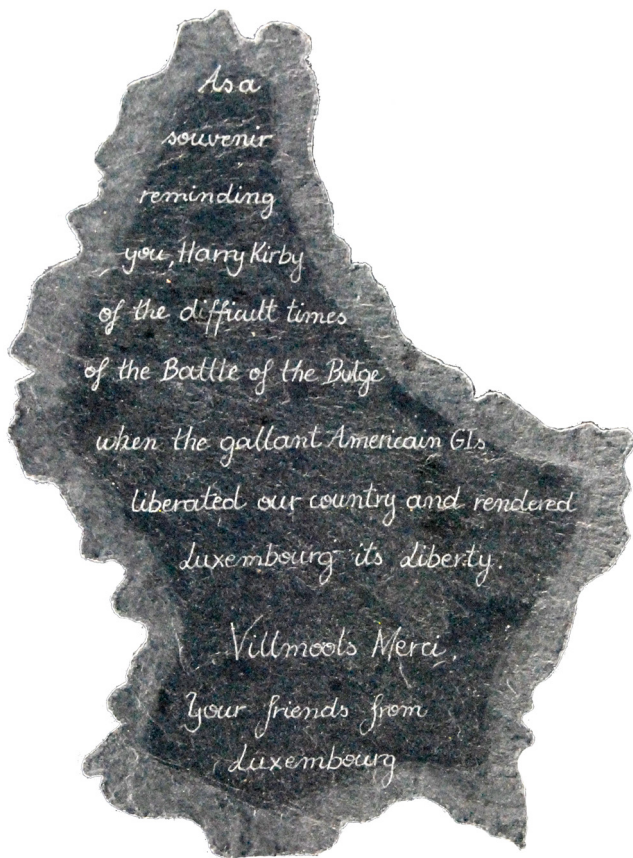 As a
souvenir
reminding
you, Harry Kirby
of the difficult times
of the Battle of the Bulge
when the gallant Americain GIs
liberated our country and rendered
Luxembourg its liberty.
Villmools Merci.
Your friends from
Luxembourg